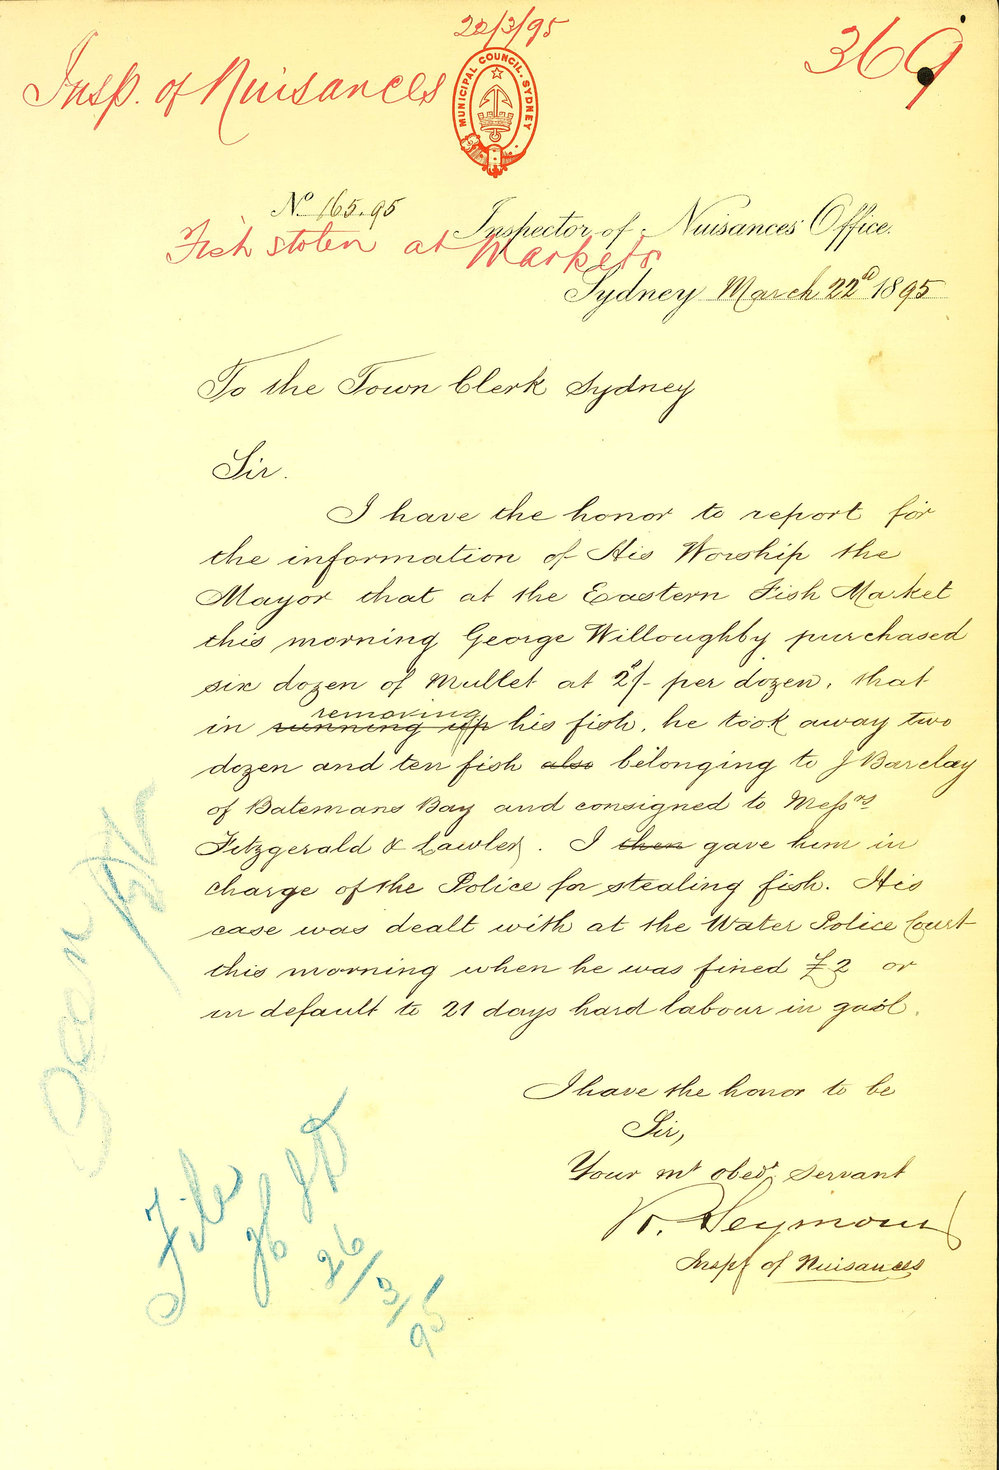 22/3/95
Insp. of Nuisances
MUNICIPAL COUNCIL. SYDNEY
369
No 165.95
Inspector of Nuisances' Office.
Fish stolen at Markets
Sydney March 22d 1895
To the Town Clerk Sydney
Sir.
I have the honor to report for
the information of His Worship the
Mayor that at the Eastern Fish Market
this morning George Willoughby purchased
six dozen of Mullet at 2/- per dozen, that
removing
in running up his fish, he took away two
dozen and ten fish also belonging to J Barclay
of Batemans Bay and consigned to Messrs
Fitzgerald & Lawler. I then gave him in
charge of the Police for stealing fish. His
case was dealt with at the Water Police Court
this morning when he was fined £2 or
in default to 21 days hard labour in gaol.
I have the honor to be
Sir,
Your mt obedt servant
R. Seymour
Inspr of Nuisances
Seen
File
26/3/95